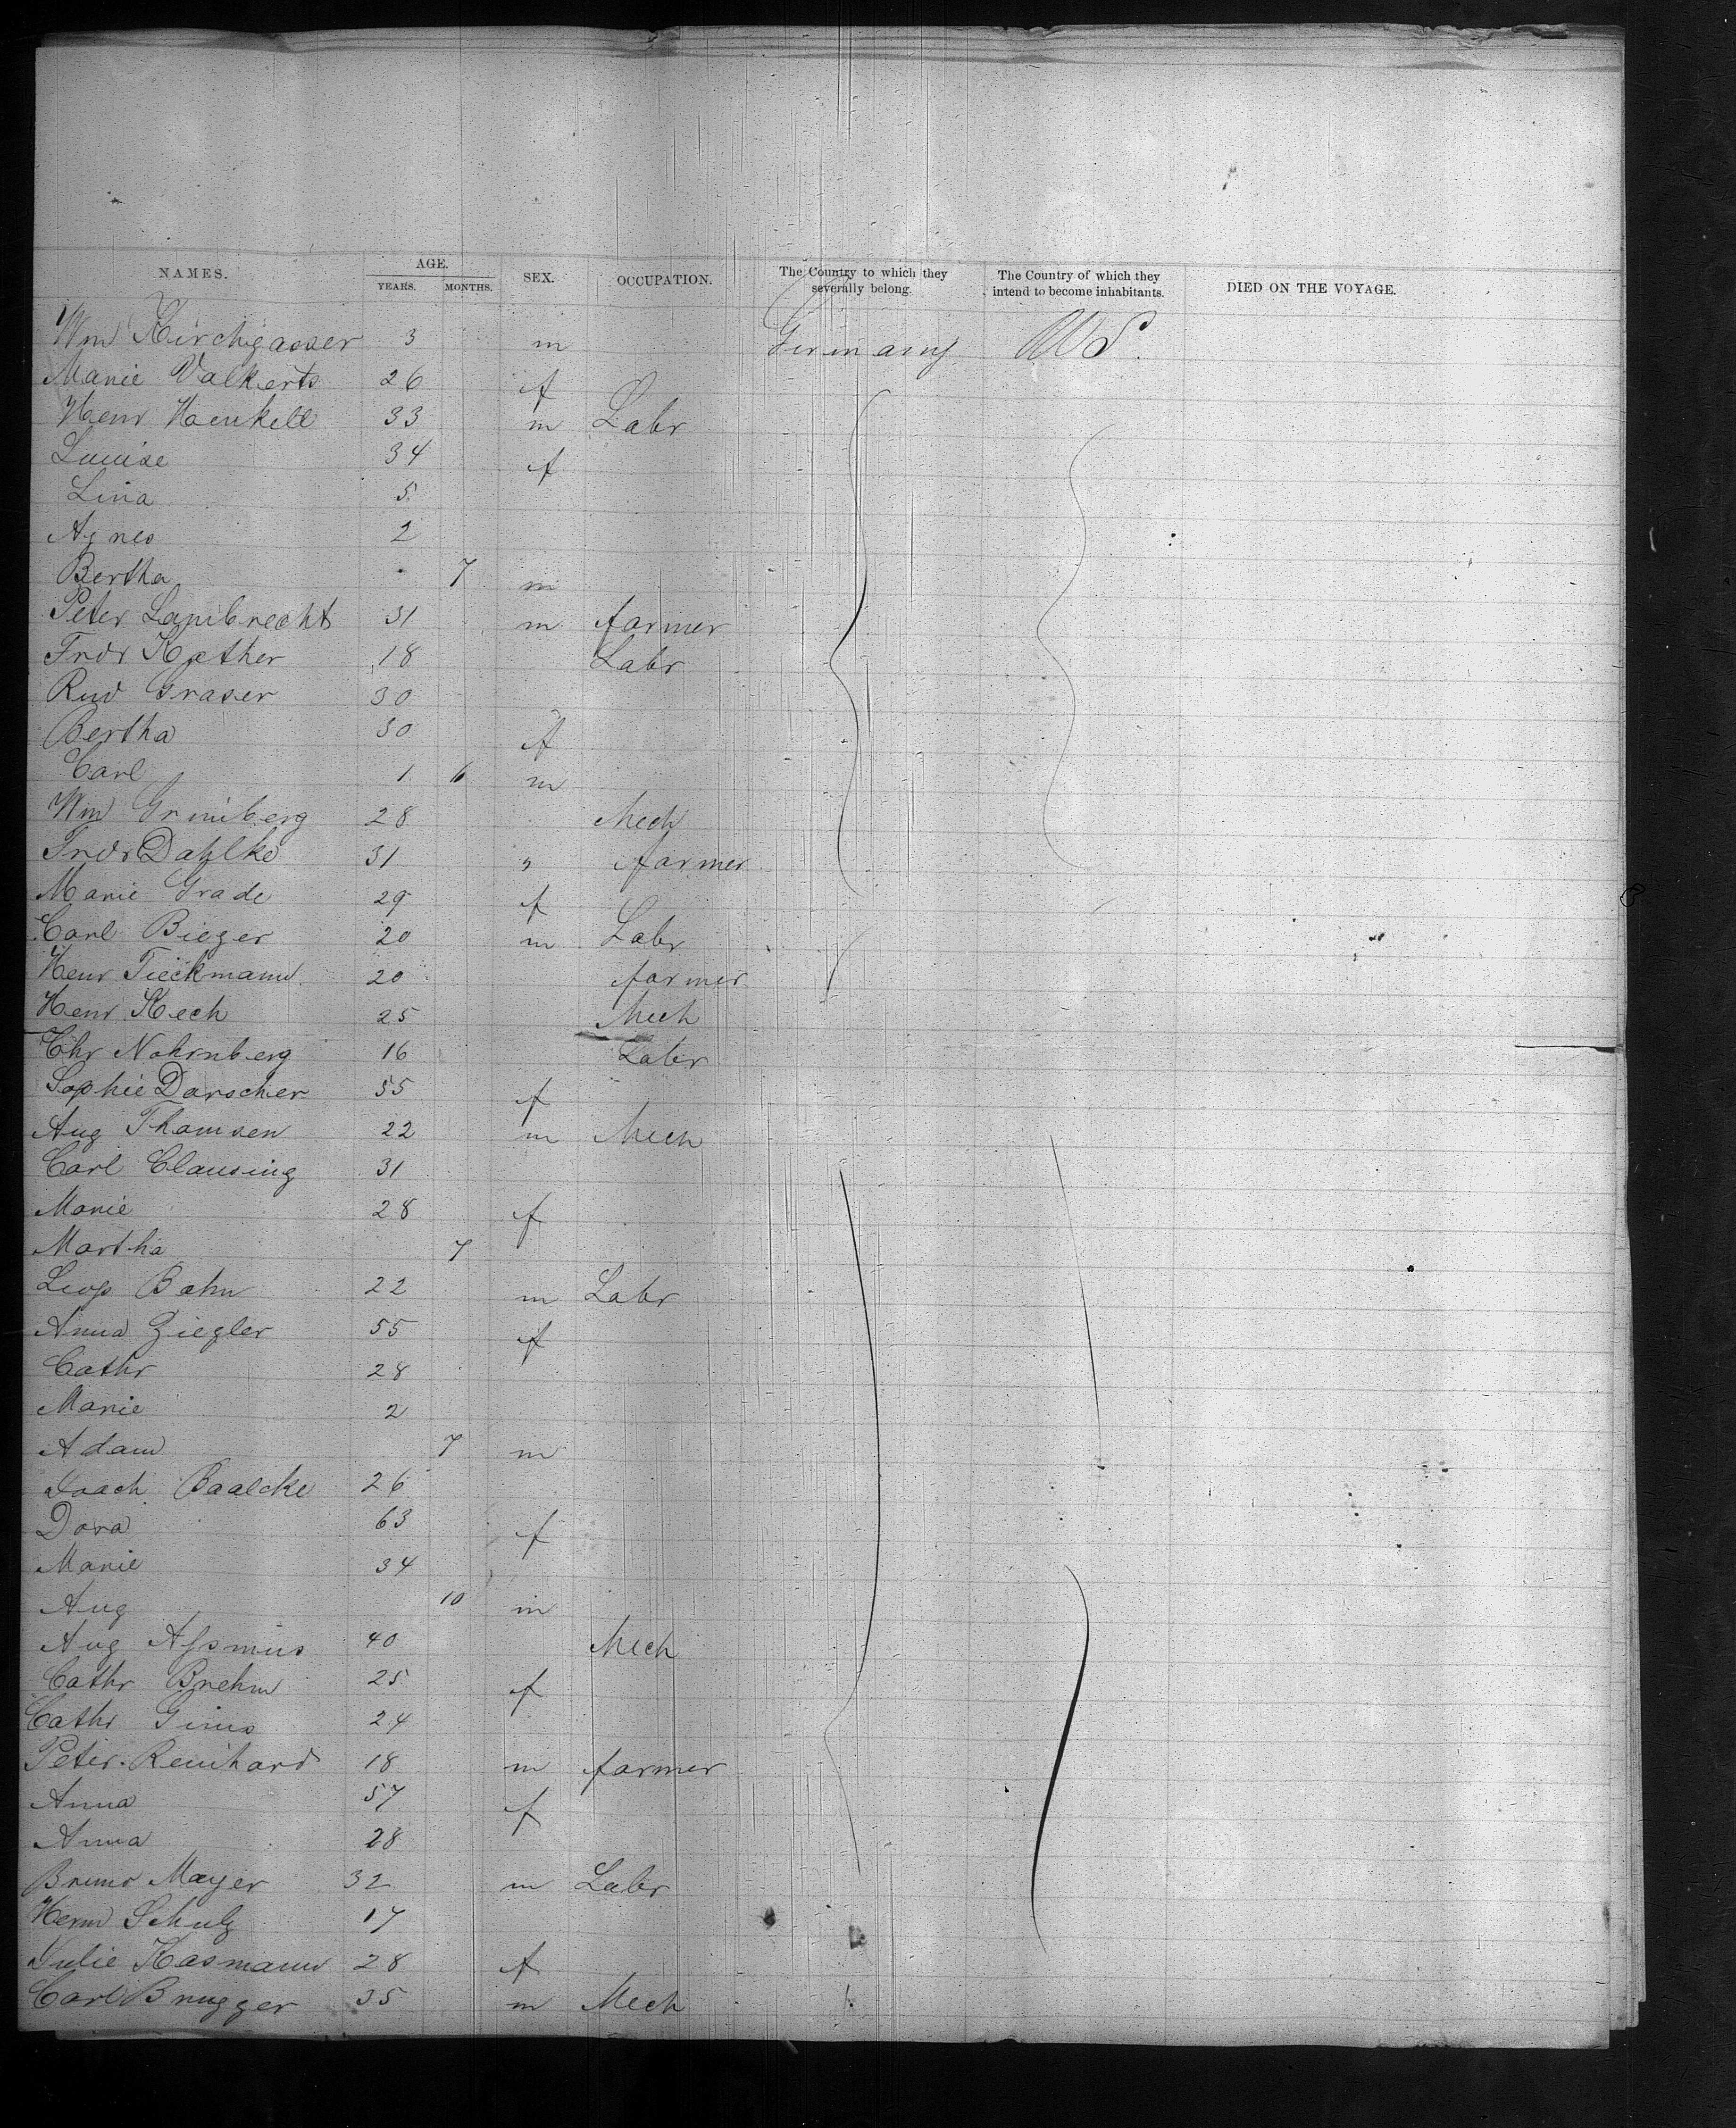 NAMES. AGE. YEARS. MONTHS. SEX. OCCUPATION. The Country to which they severally belong. The Country of which they intend to become inhabitants. DIED ON THE VOYAGE.
Wm Kirchgasser 3 m Germany US.
Marie Valkerts 26 f
Henr Henkell 33 m Labr
Louise 34 f
Lina 5
Agnes 2
Bertha 7 m
Peter Lambrecht 31 m farmer
Fredr Kather 18 Labr
Rud Graser 30
Bertha 30 f
Carl 1 6 m
Wm Gruniberg 28 Mech
Fredr Dahlke 31 " farmer
Marie Grade 29 f
Carl Bieger 20 m Labr
Henr Tieckmann 20 farmer
Henr Kech 25 Mech
Chr Nohrnberg 16 Labr
Sophie Darscher 55 f
Aug Thomsen 22 m Mech
Carl Clausing 31
Marie 28 f
Martha 7
Leop Bahn 22 m Labr
Anna Ziegler 55 f
Cathr 28
Marie 2
Adam 7 m
Joach Baalcke 26
Dora 63 f
Marie 34
Aug 10 m
Aug Assmus 40 Mech
Cathr Brehm 25 f
Cathr 24
Peter Reinhard 18 m farmer
Anna 57 f
Anna 28
Bruno Mayer 32 m Labr
Herm Schulz 17
Julie Kasmann 28 f
Carl Brugger 35 m Mech